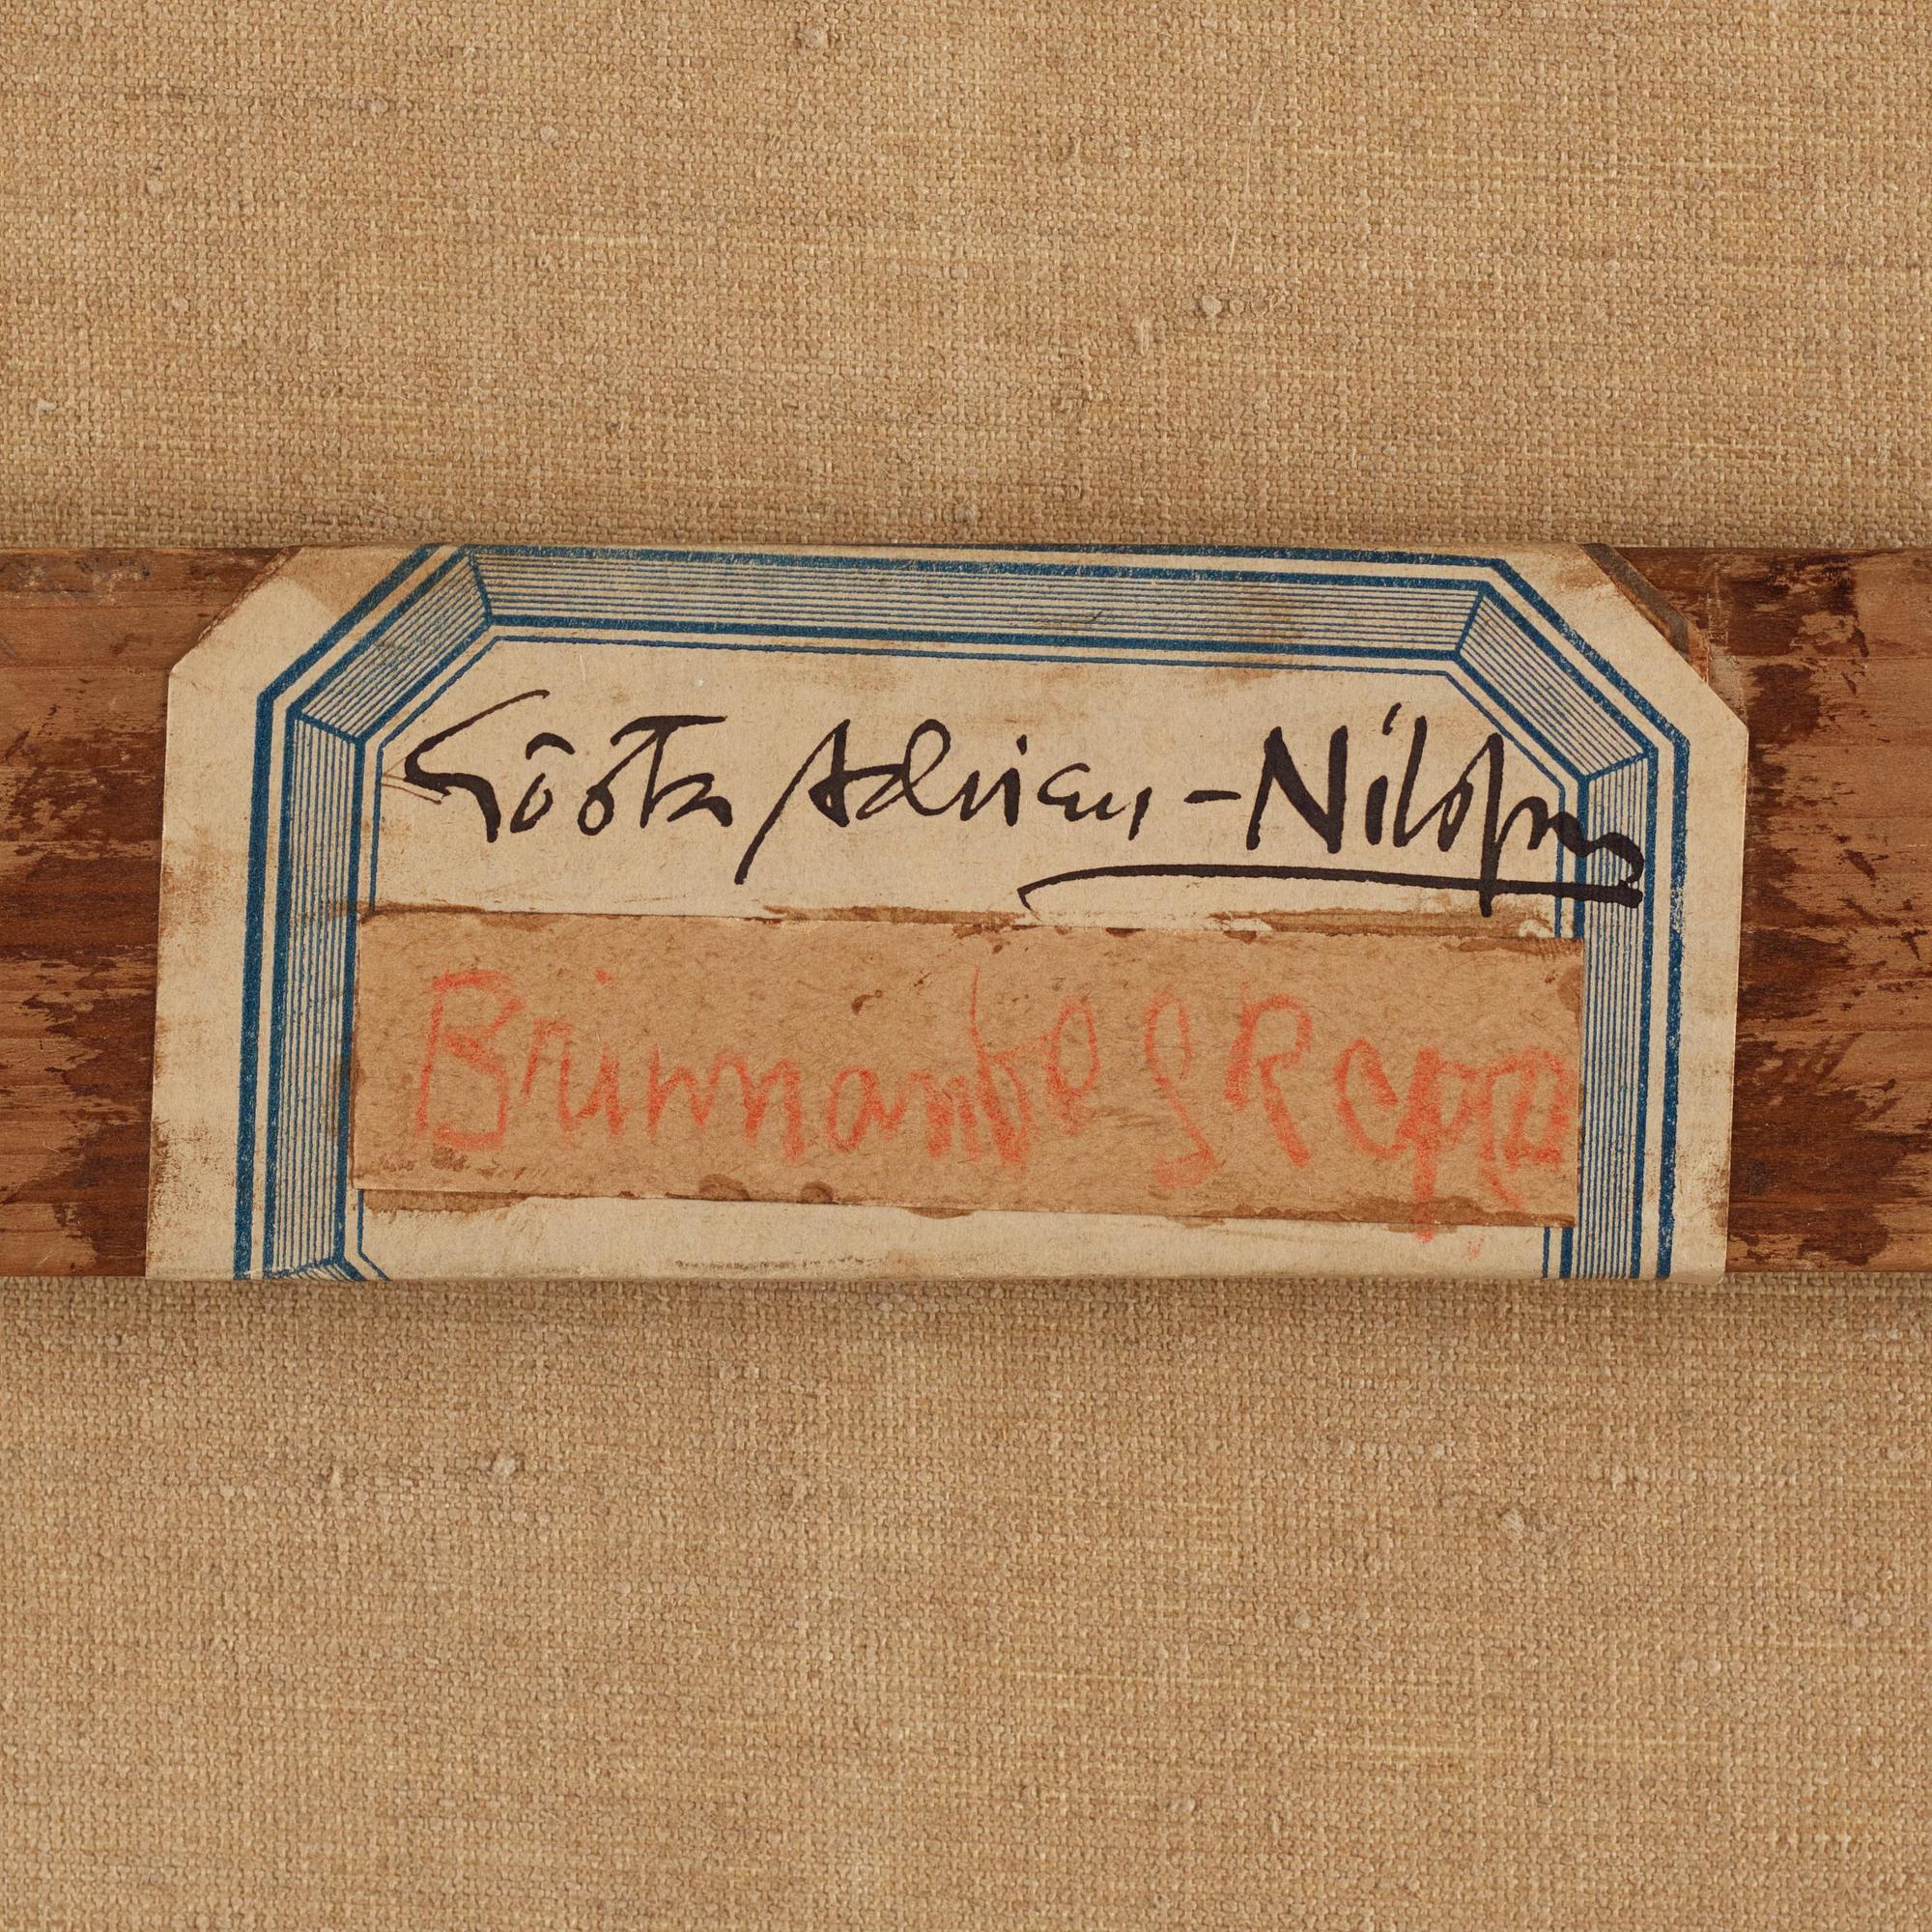 Gösta Adrian-Nilsson
Brinnande Skepp